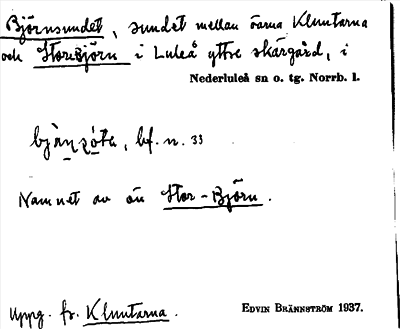 Björnsundet, sundet mellan öarna Kluntarna
och Storbjörn i Luleå yttre skärgård, i
Nederluleå sn o. tg. Norrb. l.
bf. n. 33
Namnet av ön Stor-Björn.
Uppg. fr. Kluntarna.
EDVIN BRÄNNSTRÖM 1937.